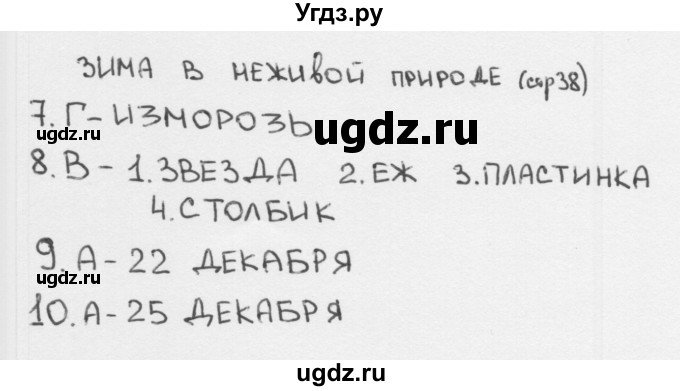 Угдз.ру
ЗИМА В НЕЖИВОЙ ПРИРОДЕ (стр38)
7. Г - ИЗМОРОЗЬ
ugdz.ru
ugdz.ru
8. В - 1. ЗВЕЗДА 2. ЕЖ 3. ПЛАСТИНКА
4. СТОЛБИК
9. А - 22 ДЕКАБРЯ
ugdz.ru
10. А - 25 ДЕКАБРЯ
ugdz.ru
ugdz.ru